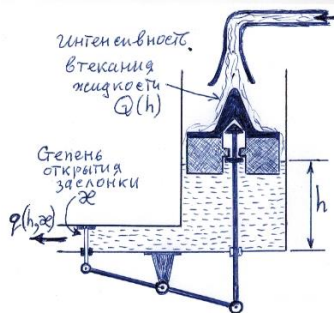 Интенсивность
втекания
жидкости
Q(h)
Степень
открытия
заслонки
æ
q(h,æ)
h